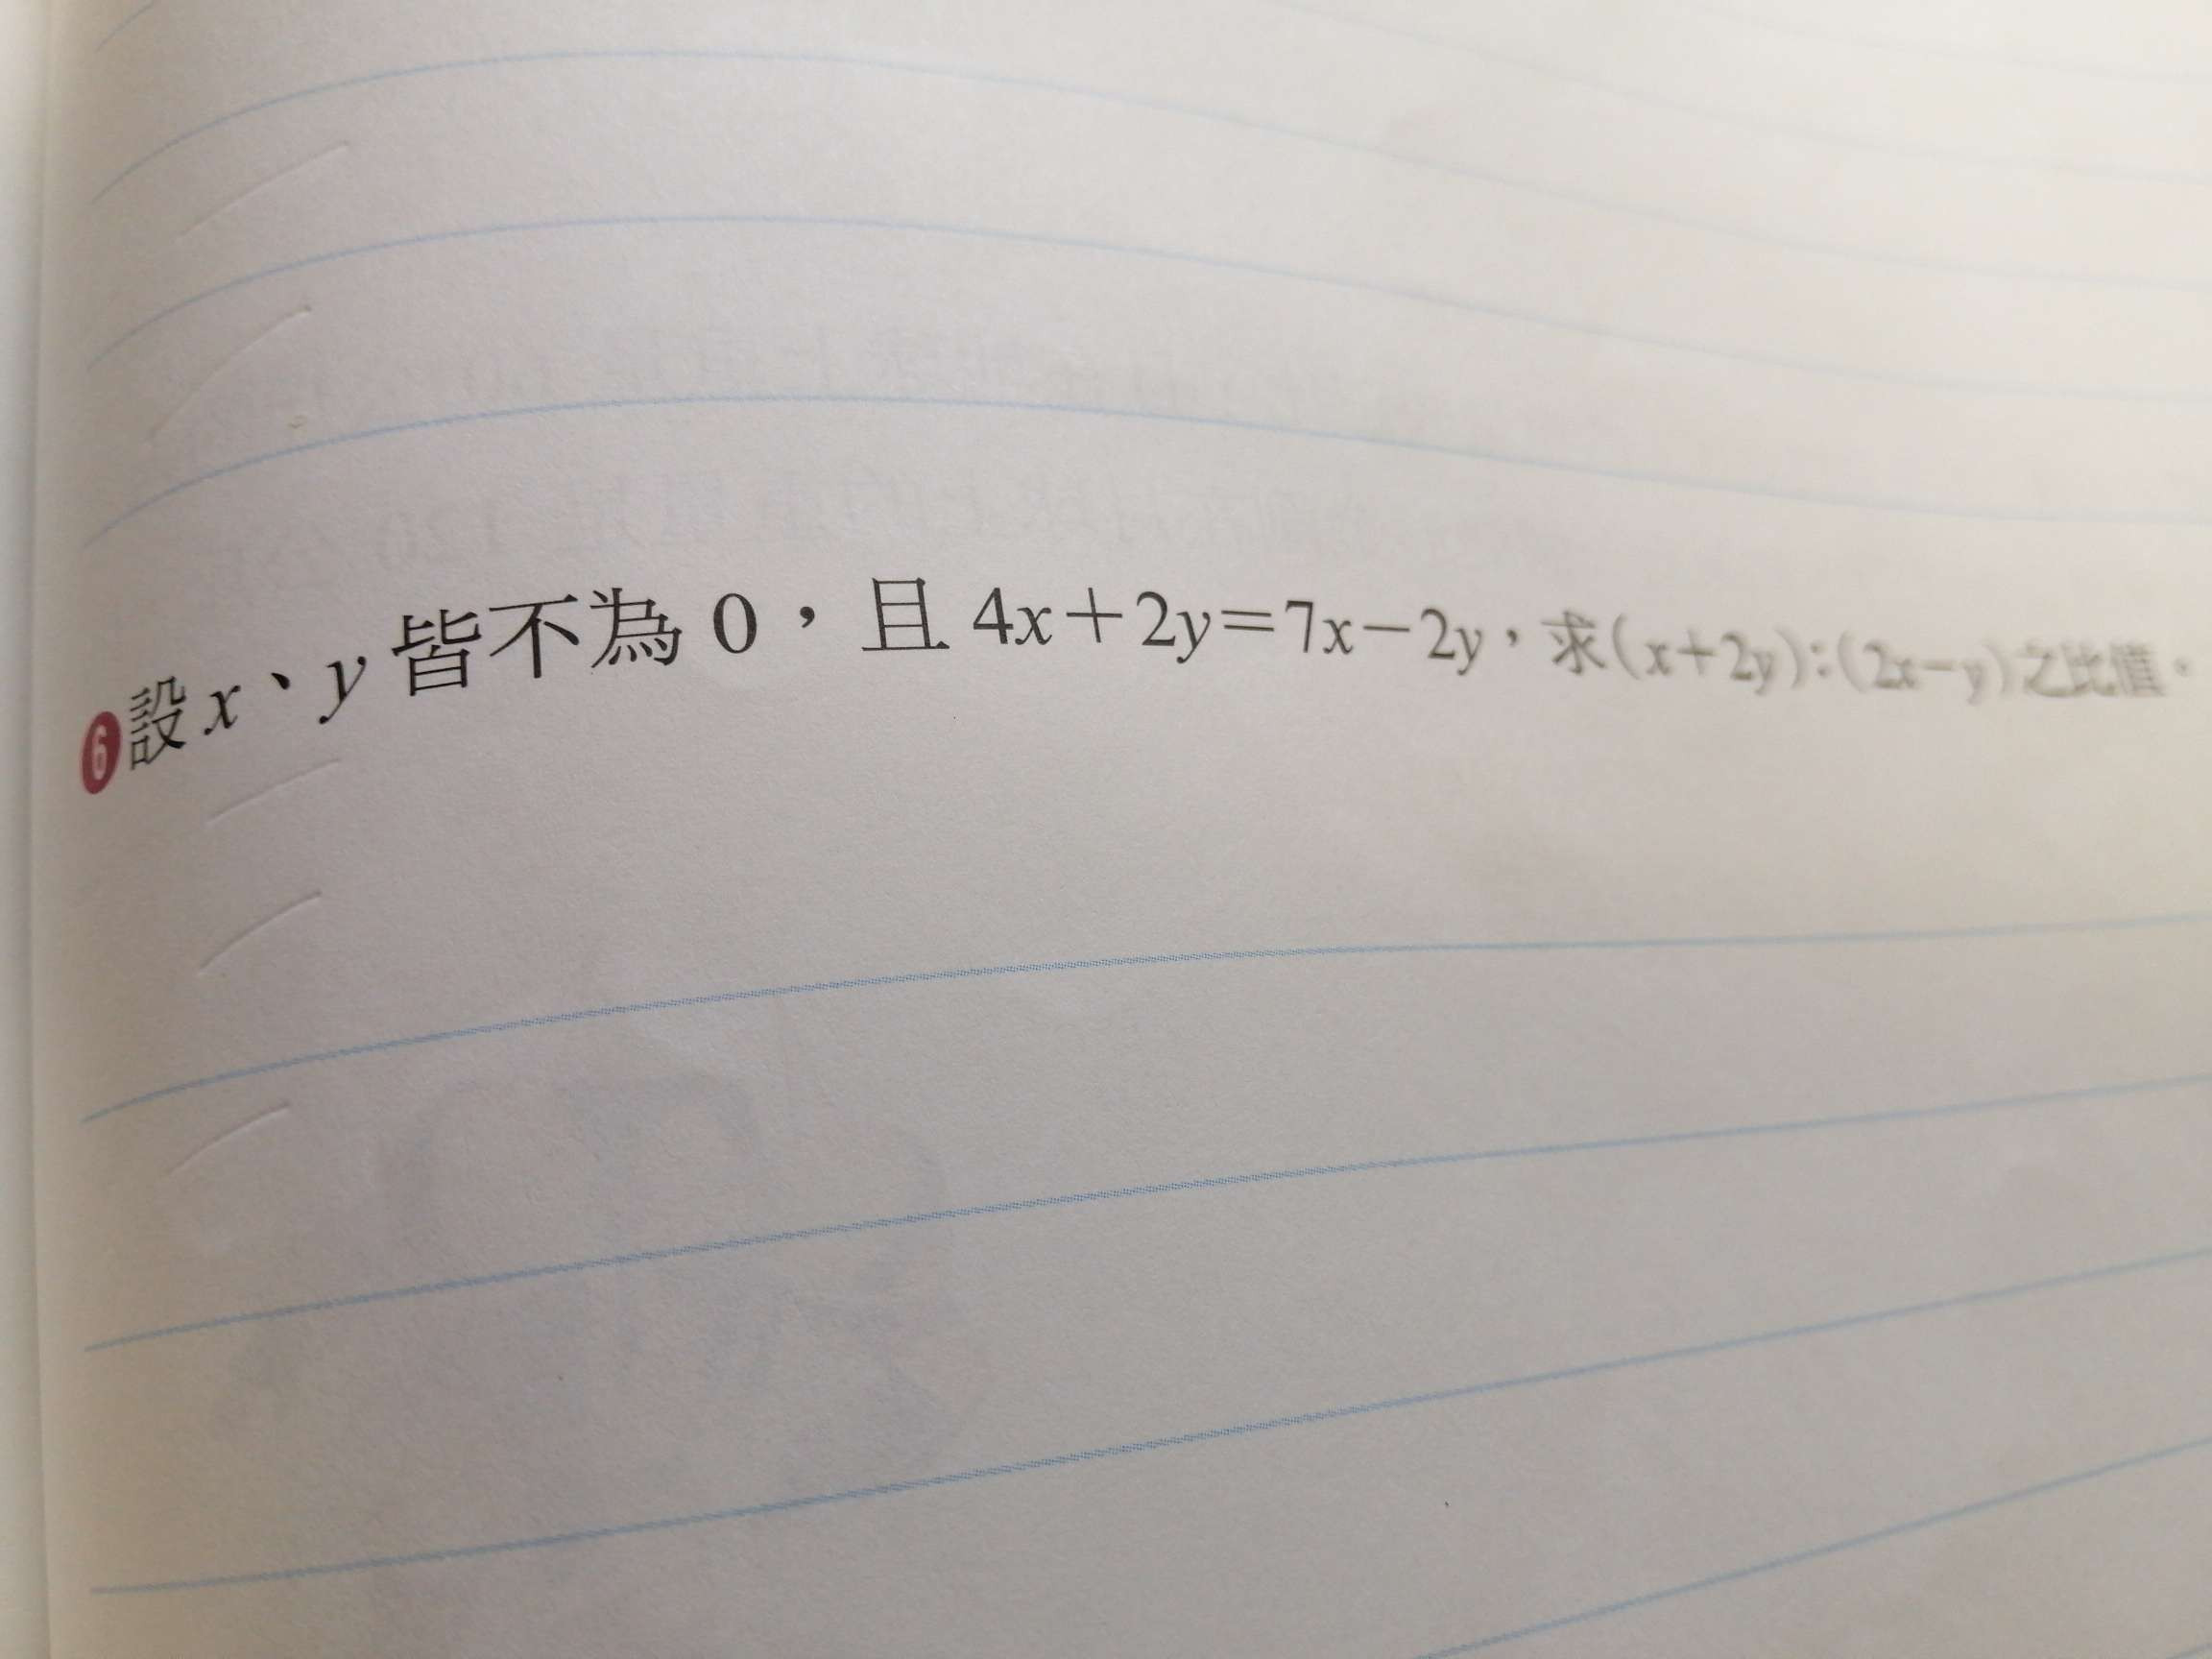 6設x、y皆不為0，且4x＋2y＝7x－2y，求(x＋2y):(2x－y)之比值。